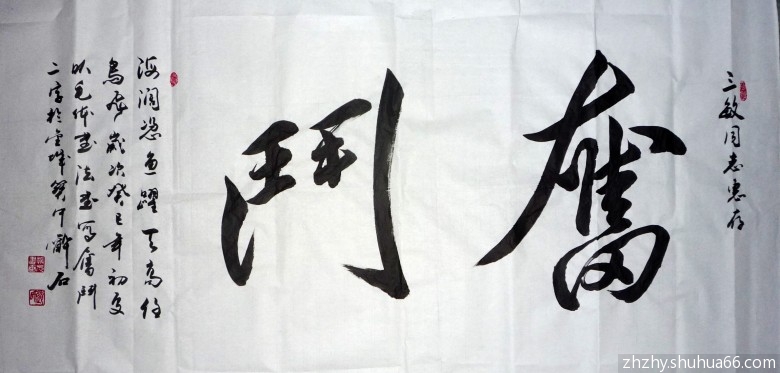 三敏同志惠存
奮鬥
海阔恣鱼跃天高任
鸟飞岁次癸巳年初夏
以毛体书法书写奮鬥
二字於金城
石
zhzhy.shuhua66.com